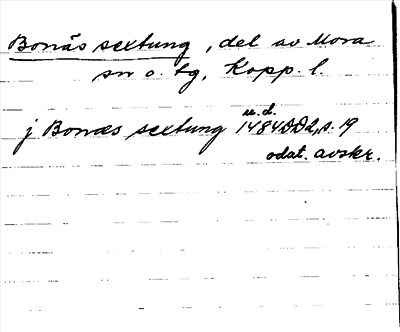 Bonäs sextung, del av Mora
sn o. tg, Kopp. l.
u.d.
j Bonæs sextung 1484 DD2, s. 19
odat. avskr.